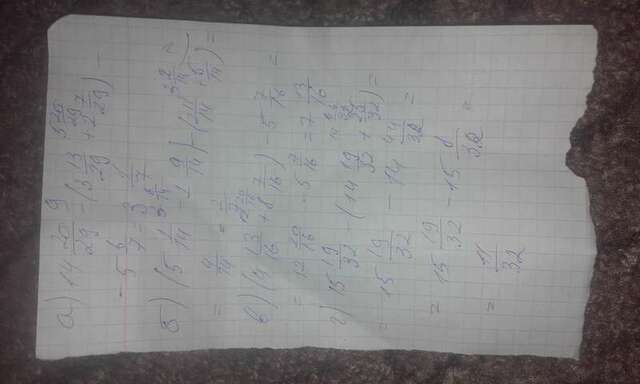 а) 14 20/29 - (3 13/29 + 2 7/29) -
- 5 6/7 = 3 1/7
б) (5 1/14 - 1 9/14) - (2 11/14 + 5/14) =
= 4/14 = 2/7
в) (4 13/16 + 8 7/16) - 5 7/16 =
= 12 20/16 - 5 7/16 = 7 13/16
г) 15 19/32 - (14 19/32 + 25/32) =
= 15 19/32 - 14 44/32 =
= 15 19/32 - 15 8/32 =
= 11/32